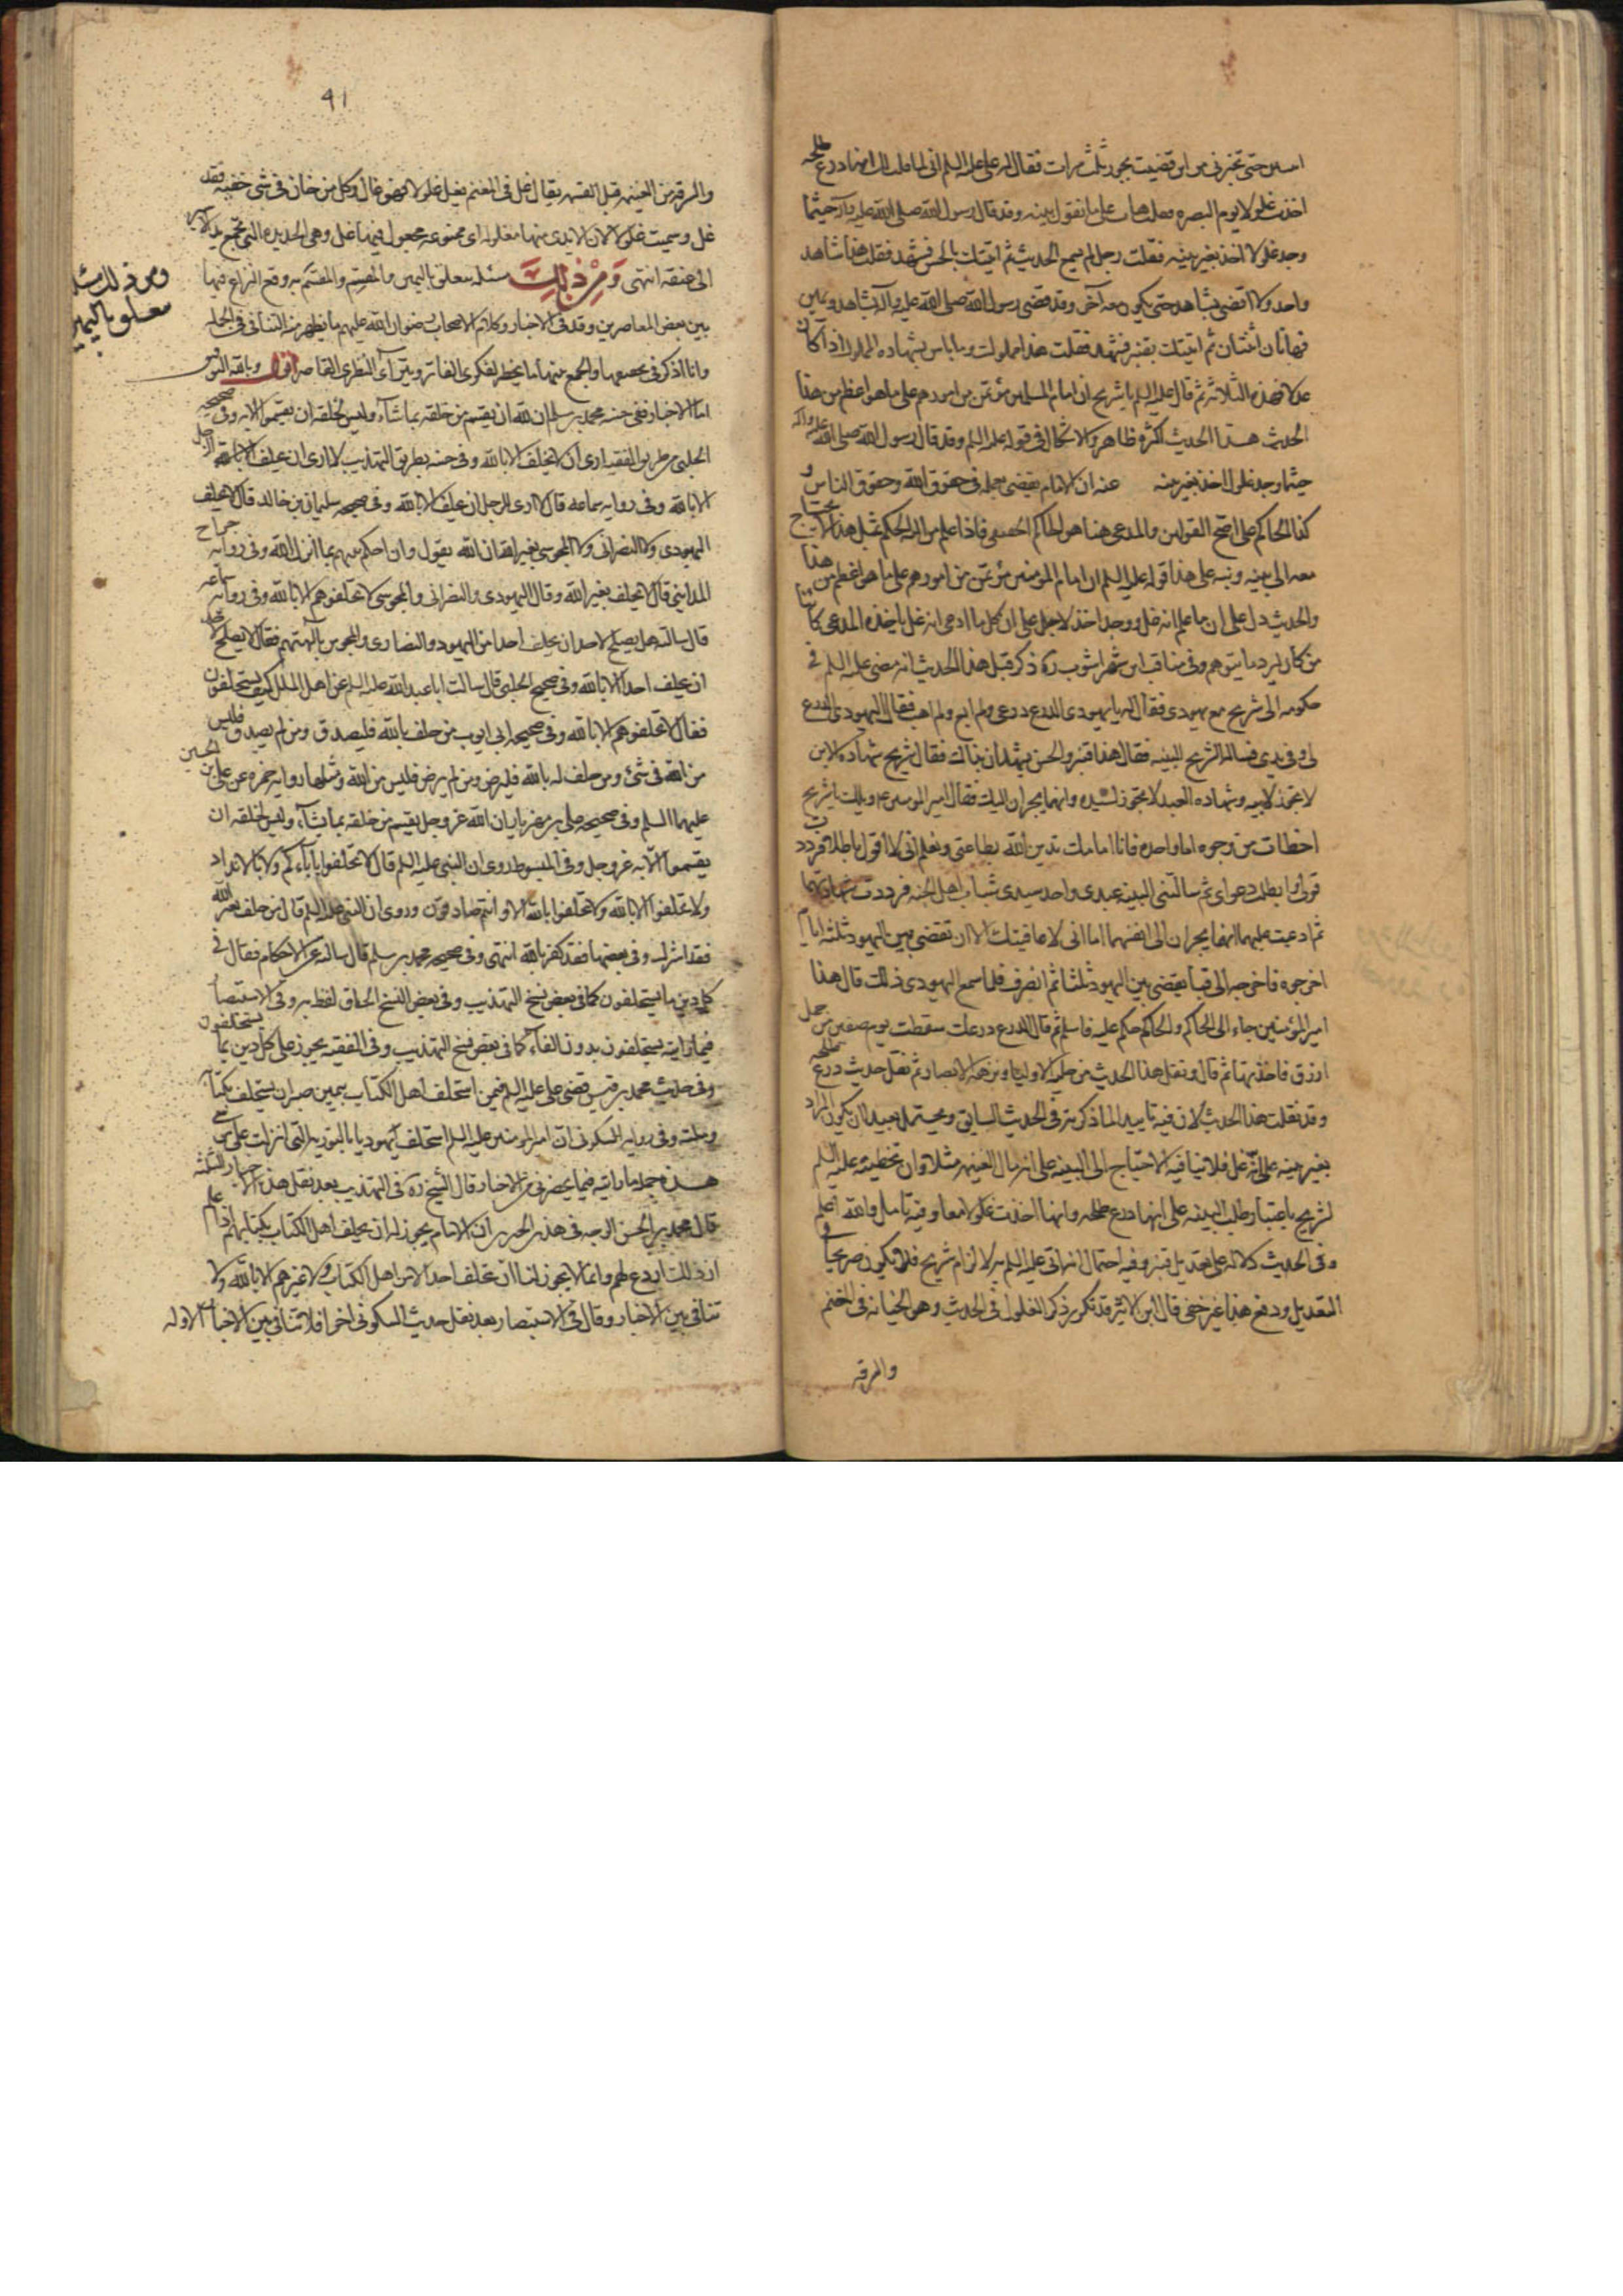 حتى تخبرني من اين قضيت بجور ثلث مرات فقال له علي عليه السلم اني لما قلت لك انها درع طلحة
اخذت غلولا يوم البصره فقلت هات على ما تقول بينه وقد قال رسول الله صلى الله عليه وآله حيثما
وجد غلول اخذ بغير بينه فقلت رجل لم يسمع الحديث ثم اتيتك بالحسن فشهد فقلت هذا شاهد
واحد ولا اقضى بشاهد حتى يكون معه آخر وقد قضى رسول الله صلى الله عليه وآله بشاهد ويمين
فهاتان اثنتان ثم اتيتك بقنبر فشهد فقلت هذا مملوك وما باس بشهاده المملوك اذا كان
عدلا فهذه الثلاثه ثم قال عليه السلم يا شريح ان امام المسلمين مؤتمن من امورهم على ما هو اعظم من هذا
الحديث هذا الحديث اكثره ظاهر ولا اشكال في قوله عليه السلم وقد قال رسول الله صلى الله عليه وآله
حيثما وجد غلول اخذ بغير بينه عنه ان الامام يقضى بعلمه في حقوق الله وحقوق الناس و
كذا الحاكم على اصح القولين والمدعى هنا هو الحاكم الحقيقى فاذا علم من له الحكم بمثل هذا لا يحتاج
معه الى بينه ونبه على هذا قوله عليه السلم ان امام المؤمنين مؤتمن من امورهم على ما هو اعظم من هذا
والحديث دل على ان ما علم انه غل ووجد اخذ لا على ان كل ما ادعى انه غل ياخذه المدعى كائنا
من كان وفى مناقب ابن شهراشوب ره ذكر قبل هذا الحديث انه مضى عليه السلم في
حكومه الى شريح مع يهودى فقال له يا يهودى الدرع درعى ولم ابع ولم اهب فقال اليهودى الدرع
لى وفى يدى فساله شريح البينه فقال هذا قنبر والحسن يشهدان بذلك فقال شريح شهاده الابن
لا تجوز لابيه وشهاده العبد لا تجوز لسيده وانهما يجران اليك فقال امير المومنين ع ويلك يا شريح
اخطات من وجوه اما واحده فانا امامك تدين الله بطاعتى وتعلم انى لا اقول باطلا فرددت
قولى وابطلت دعواى ثم سالتنى البينه عبدى واحد سيدى شباب اهل الجنه فرددت شهادتهما
ثم ادعيت عليهما انهما يجران الى انفسهما اما انى لا عاقبتك الا ان تقضى بين اليهود ثلثه ايام
اخرجوه فاخرجه الى قبا يقضى بين اليهود ثلثا ثم انصرف فلما سمع اليهودى ذلك قال هذا
امير المؤمنين جاء الى الحاكم والحاكم حكم عليه فاسلم ثم قال الدرع درعك سقطت يوم صفين من جمل
اورق فاخذتها ثم قال ونقل هذا الحديث من حليه الاولياء ونزهه الابصار ثم نقل حديث درع طلحه
وقد نقلت هذا الحديث لان فيه تاييدا لما ذكرته في الحديث السابق ويحتمل بعيدا ان يكون المراد
بغير بينه على انه غل فلا ينافيه الاحتياج الى البينه على انه مال الغنيمه مثلا وان تخطئته عليه السلم
لشريح باعتبار طلب البينه على انها درع طلحه وانها اخذت غلولا معا وفيه تامل والله اعلم
وفى الحديث دلاله على تعديل قنبر وفيه احتمال انه اتى عليه السلم به لالزام شريح فلا يكون صريحا في
التعديل ودفع هذا غير خفى قال ابن الاثير قد تكرر ذكر الغلول في الحديث وهو الخيانه في المغنم
والسرقه
٩١
والسرقه من الغنيمه قبل القسمه يقال غل في المغنم يغل غلولا فهو غال وكل من خان في شى خفيه فقد
غل وسميت غلولا لان الايدى منها مغلوله اى ممنوعه مجعول فيها غل وهى الحديده التى تجمع يد الاسير
الى عنقه انتهى وَمِنْ ذلِكَ مسئله متعلق باليمين والمقسم والمقسم به وقع النزاع فيها
بين بعض المعاصرين وقد في الاخبار وكلام الاصحاب رضوان الله عليهم ما يظهر منه التنافى في الجمله
وانا اذكر والجمع بينها ما يخطر لفكرى الفاتر وبين آى النظرى القاصر اقول وبالله التوفيق
اما الاخبار ففى حسنه محمد بن مسلم ان لله ان يقسم من خلقه بما شاء وليس لخلقه ان يقسموا الا به وفى صحيحه
الحلبى من طريق الفقيه ارى ان لا يحلف الا بالله وفى حسنه بطريق التهذيب لا ارى ان يحلف الرجل
الا بالله وفى روايه سماعه قال لا ارى للرجل ان يحلف الا بالله وفى صحيحه سليمان بن خالد قال لا يحلف
اليهودى ولا النصرانى ولا المجوسى بغير الله ان الله يقول وان احكم بينهم بما انزل الله وفى روايه جراح
المداينى قال لا يحلف بغير الله وقال اليهودى والنصرانى والمجوسى لا تحلفوهم الا بالله وفى روايه سماعه
قال سالته هل يصلح لاحد ان يحلف احدا من اليهود والنصارى والمجوس بآلهتهم فقال لا يصلح لاحد
ان يحلف احدا الا بالله وفى صحيح الحلبى قال سالت ابا عبد الله عليه السلم عن اهل الملل كيف يستحلفون
فقال لا تحلفوهم الا بالله وفى صحيحه ابى ايوب من حلف بالله فليصدق ومن لم يصدق فليس
من الله في شئ ومن حلف له بالله فليرض ومن لم يرض فليس من الله ومثلها روايه ابى حمزه عن على بن الحسين
عليهما السلم وفى صحيحه على بن مهزيار ان الله عز وجل يقسم من خلقه بما يشاء وليس لخلقه ان
يقسموا الا به عز وجل وفى المبسوط روى ان النبى عليه السلم قال لا تحلفوا بآبائكم ولا بالانداد
ولا تحلفوا الا بالله ولا تحلفوا بالله الا وانتم صادقون وروى ان النبى عليه السلم قال من حلف بغير الله
فقد اشرك وفى بعضها فقد كفر بالله انتهى وفى صحيحه محمد بن مسلم قال سالته عن الاحكام فقال في
كل دين ما يستحلفون كما في بعض نسخ التهذيب وفى بعض النسخ الحاق لفظ به وفى الاستبصار
فيما رايته يستحلفون بدون الفاء كما في بعض نسخ التهذيب وفى الفقيه يجوز على كل دين بما يستحلفون
وفى حديث محمد بن قيس قضى على عليه السلم فيمن استحلف اهل الكتاب بيمين صبر ان يستحلف بكتابه
وملته وفى روايه السكونى ان امير المومنين عليه السلم استحلف يهوديا بالتوريه التى انزلت على موسى
هذه جمله ما رايته فيما يحضرنى من الاخبار قال الشيخ ره في التهذيب بعد نقل هذه الاخبار الثلثه
قال محمد بن الحسن الوجه في هذين الخبرين ان الامام يجوز له ان يحلف اهل الكتاب بكتابهم اذا علم
ان ذلك اردع لهم وانما لا يجوز لنا ان نحلف احدا لا من اهل الكتاب ولا غيرهم الا بالله ولا
تنافى بين الاخبار وقال في الاستبصار بعد نقل حديث السكونى اخرا فلا تنافى بين الاخبار الاوله
ومن ذلك مسئله
متعلق باليمين